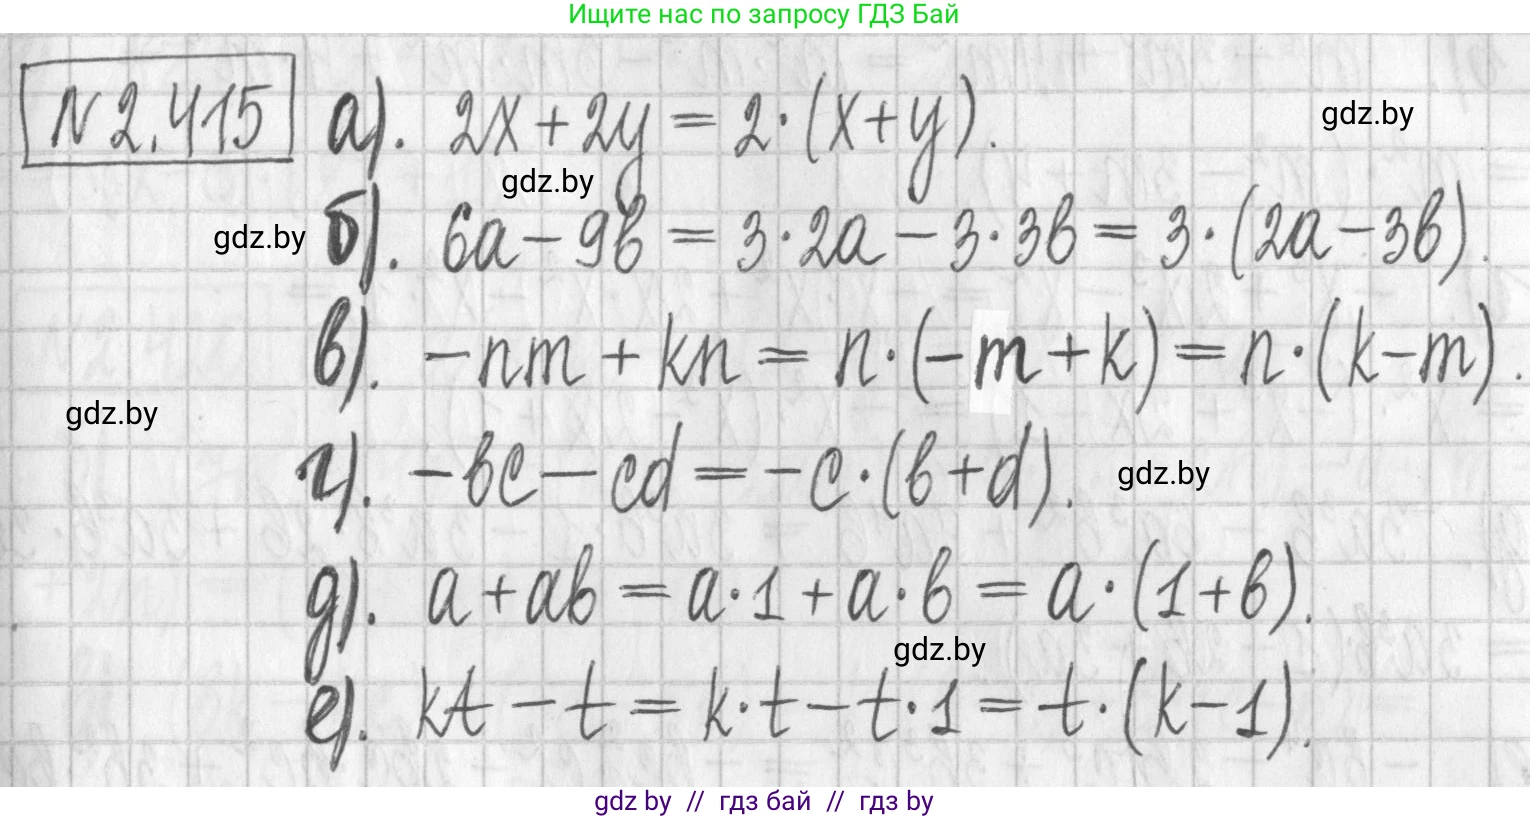 Ищите нас по запросу ГДЗ Бай
N 2.415 а). 2x + 2y = 2·(x+y).
gdz.by
gdz.by
gdz.by
б). 6a − 9b = 3·2a − 3·3b = 3·(2a−3b).
в). −nm + kn = n·(−m+k) = n·(k−m).
gdz.by
г). −bc − cd = −c·(b+d).
gdz.by
д). a + ab = a·1 + a·b = a·(1+b).
gdz.by
е). kt − t = k·t − t·1 = t·(k−1).
gdz by // гдз бай // гдз by